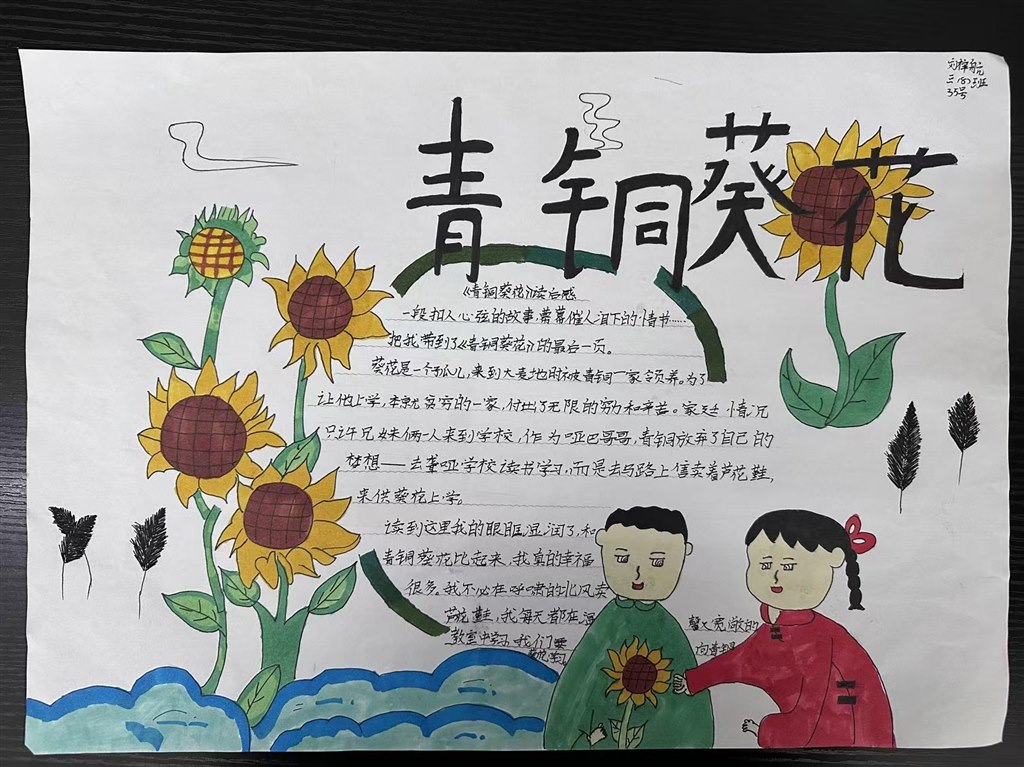 刘梓航
三(8)班
35号
青铜葵花
《青铜葵花》读后感
一段扣人心弦的故事,幕幕催人泪下的情书……
把我带到了《青铜葵花》的最后一页。
葵花是一个孤儿,来到大麦地时被青铜一家领养。为了
让他上学,本就贫穷的一家,付出了无限的努力和辛苦。家 情况
只许兄妹俩一人来到学校,作为哑巴哥哥,青铜放弃了自己的
梦想——去聋哑学校读书学习,而是去马路上售卖着芦花鞋,
来供葵花上学。
读到这里我的眼眶湿润了,和
青铜葵花比起来,我真的幸福
很多,我不必在呼啸的北风卖
芦花鞋,我每天都在温馨又宽敞的
教室中学习,我们要向青铜
葵花学习